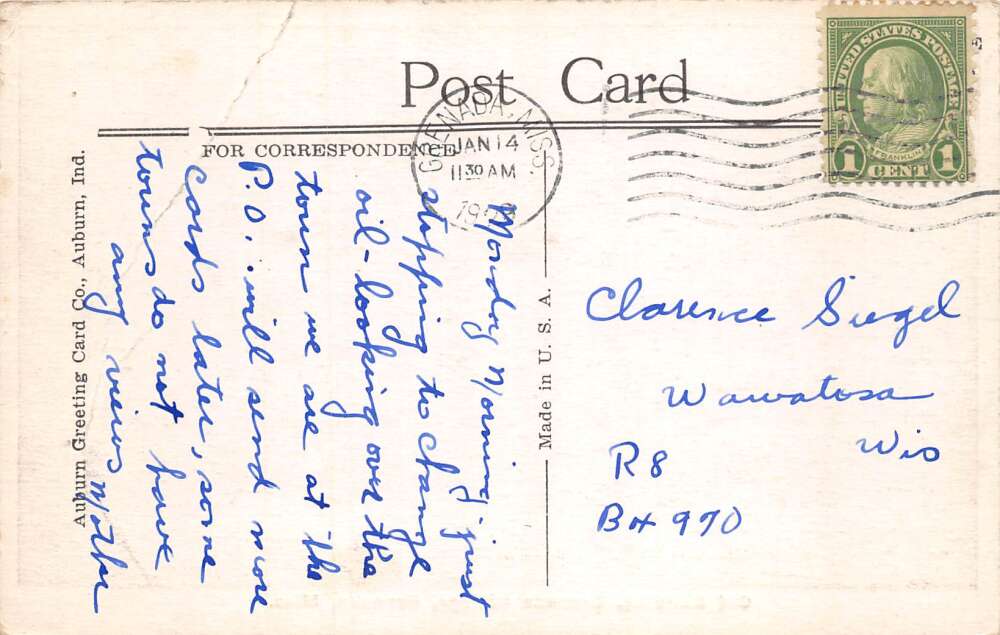 Post Card
FOR CORRESPONDENCE
GRENADA, MISS.
JAN 14
11 30 AM
UNITED STATES POSTAGE
FRANKLIN
1 CENT 1
Monday Morning just
stopping to change
oil - looking over the
town we are at the
P.O. will send more
Cards later, some
towns do not have
any views Mother
Clarence Siegel
Wawatosa
Wis
R 8
BX 970
Auburn Greeting Card Co., Auburn, Ind.
Made in U. S. A.